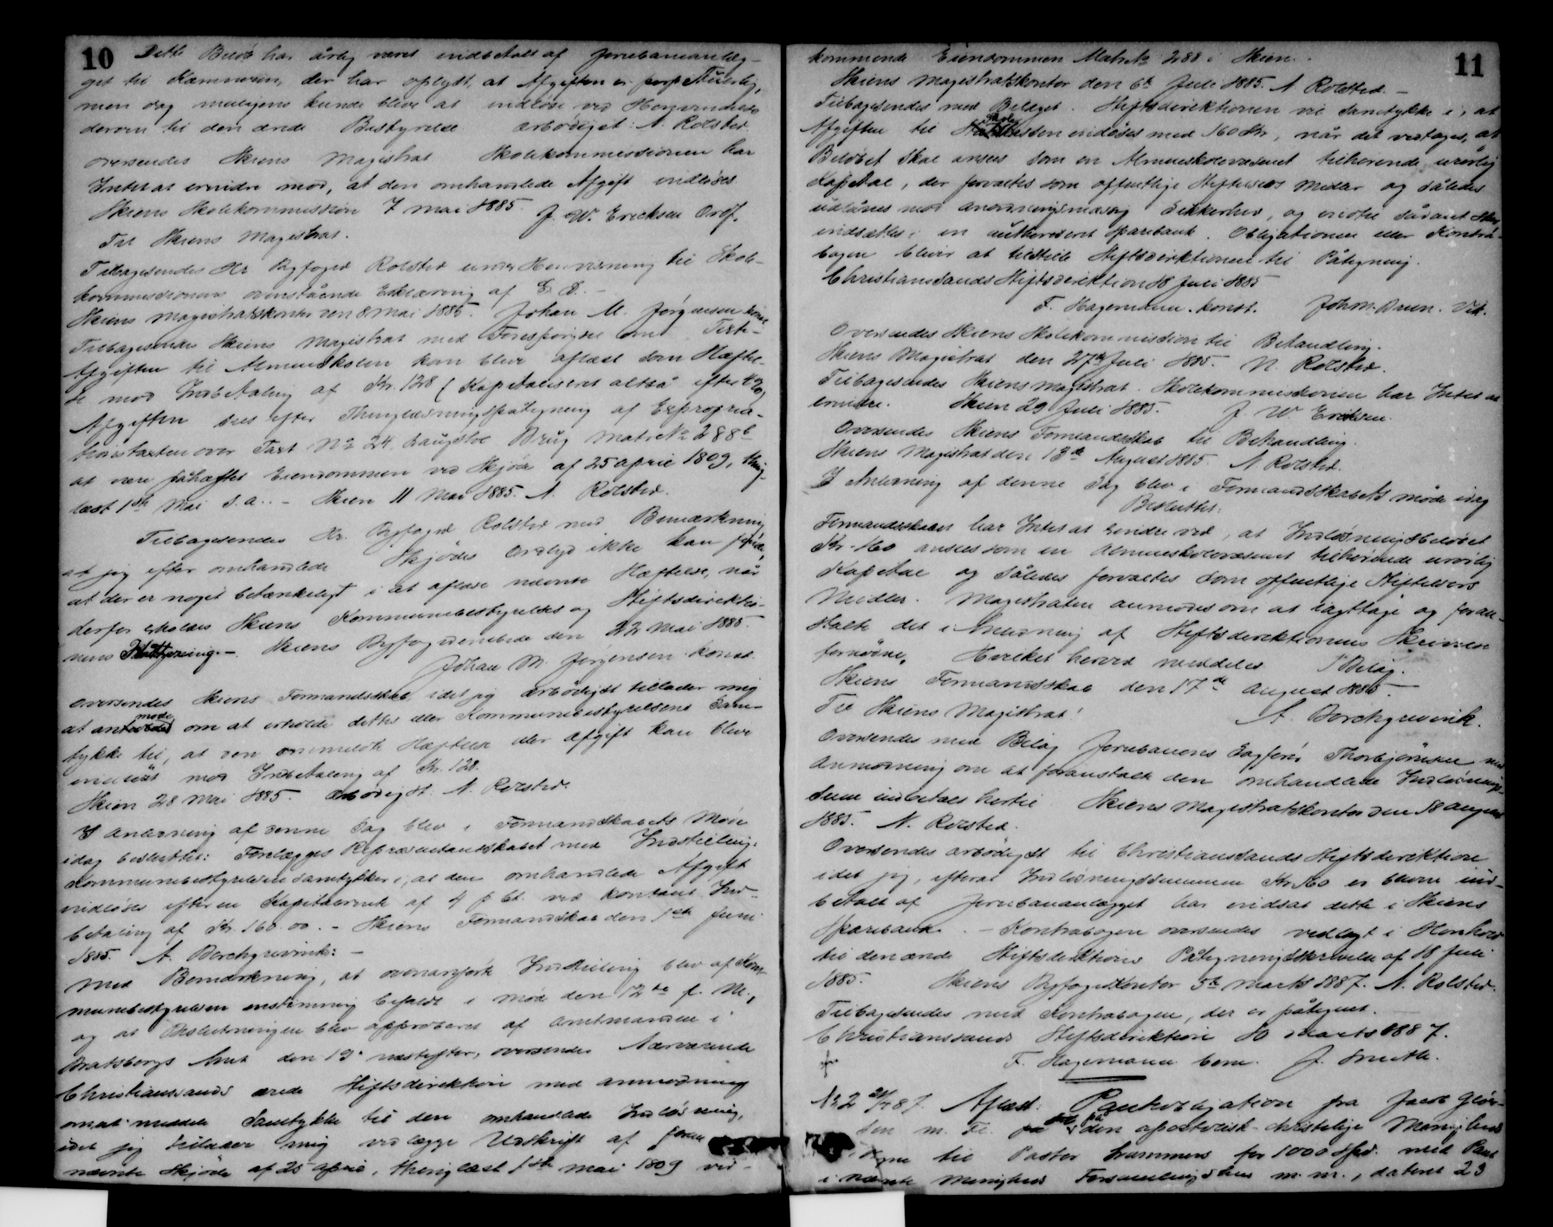 10
Dette Beløb har årlig været indbetalt af Jernbaneanlæg-
get til Kæmneren, der har oplyst, at Afgiften er perpetuerlig,
men dog muligens kunde blive at indløse ved Henvendelse
derom til den ærede Bestyrelse arbødigst N. Rolsted.
oversendes Skiens Magistrat Skolekommissionen har
Intet at erindre mod, at den omhandlede Afgift indløses
Skiens Skolekommission 7 mai 1885. J. W. Ericksen Ordf.
Til Skiens Magistrat.
Tilbagesendes Hr Byfoged Rolsted under Henvisning til Skole-
kommissionens ovenstående Erklæring af
Skiens Magistratskontor den 8 mai 1885. Johan M. Jørgensen konst.
Tilbagesendes Skiens Magistrat med Forespørgsel om
Afgiften til Almueskolen kan blive aflæst som Hæftel-
se mod Indbetaling af Kr. 128 (Kapitaliseret altså efter
Afgiften sees efter Thinglæsningspåtegning af Expropria-
tionstaxten over Taxt No 24 Brug Matr No 288b
at være påhæftet Eiendommen ved Skjøde af 25 april 1809, thing-
læst 1ste Mai s.a. - Skien 11 Mai 1885. N. Rolsted.
Tilbagesendes Hr. Byfoged Rolsted med Bemærkning
at jeg efter omhandlede Skjødes Ordlyd ikke kan finde,
at der er noget betænkeligt i at aflæse nævnte Hæftelse, når
derfor erholdes Skiens Kommunebestyrelses og Stiftsdirektio-
nens Skiens Byfogedembede den 22 Mai 1885.
Johan M. Jørgensen konst.
oversendes Skiens Formandskab, idet jeg ærbødigst tillader mig
at anmode om at erholde dettes eller Kommunebestyrelsens Sam-
tykke til, at den ommeldte Hæftelse eller Afgift kan blive
indløst mod Indbetaling af Kr. 128.
Skien 28 Mai 1885. Ærbødigst N. Rolsted.
I Anledning af denne Sag blev i Formandskabets Møde
idag besluttet: Forelægges Repræsentantskabet med Indstilling:
Kommunebestyrelsen samtykker i, at den omhandlede Afgift
indløses efter en Kapitalværdi af 4 p Ct. ved kontant Ind-
betaling af Kr. 160.00. - Skiens Formandskab den 1ste Juni
1885 A. Borchgrevink: -
Med Bemærkning, at ovenanførte Indstilling blev af Kom-
munebestyrelsen enstemmig bifaldt i møde den 12te f. M.,
og at Beslutningen blev approberet af Amtmanden i
Bratsbergs Amt den 19de næstefter, oversendes Nærværende
Christianssands ærede Stiftsdirektion med anmodning
om at meddele Samtykke til den omhandlede Indløsning,
idet jeg tillader mig vedlægge Udskrift af
nævnte Skjøde af 25 april, thinglæst 1ste mai 1809 ved-
11
kommende Eiendommen Matr No 288 i Skien.
Skiens Magistratskontor den 6te Juli 1885. N Rolsted. -
Tilbagesendes med Bilaget. Stiftsdirektionen vil samtykke i, at
Afgiften til Skolekassen indløses med 160 Kr., når det vedtages, at
Beløbet skal ansees som en Almueskolevæsenet tilhørende urørlig
Kapital, der forvaltes som offentlige Stiftelsers Midler og således
udlånes mod anordningsmæssig Sikkerhed, og indtil sådant sker
indsættes i en autoriseret Sparebank. Obligationen eller Kontra-
bogen bliver at tilstille Stiftsdirektionen til Påtegning.
Christianssands Stiftsdirektion 18 Juli 1885
F. Hagemann. konst. Joh. M. Vid.
Oversendes Skiens Skolekommission til Behandling.
Skiens Magistrat den 27de Juli 1885. N. Rolsted.
Tilbagesendes Skiens magistrat. Skolekommissionen har Intet at
erindre. Skien 29 Juli 1885. J. W. Ericksen.
Oversendes Skiens Formandskab til Behandling.
Skiens Magistrat den 13de August 1885. N Rolsted.
I Anledning af denne Sag blev i Formandskabets møde idag
Besluttet:
Formandskabet har Intet at erindre ved, at Indløsningsbeløbet
Kr. 160 ansees som en Almueskolevæsenet tilhørende urørlig
Kapital og således forvaltes som offentlige Stiftelsers
Midler. Magistraten anmodes om at iagttage og foran-
stalte det i Anledning af Stiftsdirektionens Skrivelse
fornødne, Hvilket herved meddeles 1 Bilag.
Skiens Formandskab den 17de August 1885. -
Til Skiens Magistrat! A. Borchgrevink.
Oversendes med Bilag Jernbanens Sagfører Thorbjørnsen med
Anmodning om at foranstalte den omhandlede Indløsnings-
sum indbetalt hertil. Skiens Magistratskontor den 18 August
1885. N. Rolsted.
Oversendes arbødigst til Christianssands Stiftsdirektion
idet jeg, efterat Indløsningssummen Kr. 160 er bleven ind-
betalt af Jernbaneanlægget har indsat dette i Skiens
Sparebank. - Kontrabogen oversendes vedlagt i Henhold
til den ærede Stiftsdirektions Påtegningsskrivelse af 18 Juli
1885. Skiens Byfogedkontor 5te Marts 1887. N. Rolsted.
Tilbagesendes med Kontrabogen, der er påtegnet.
Christianssands Stiftsdirektion 10 marts 1887.
F. Hagemann const. J. Smith.
No 2 21/7 87. Aflæst: Panteobligation fra Jacob
m. Fl. på den apostolisk-christelige Menigheds
Vegne til Pastor Lammers for 1000 Spd. med Pant
i nævnte Menigheds Forsamlingshus m.m., dateret 23